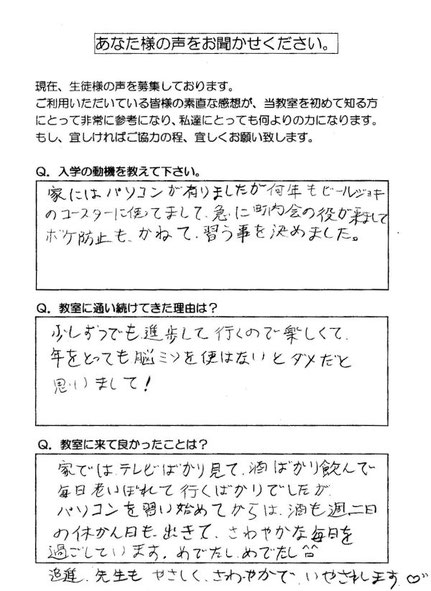 あなた様の声をお聞かせください。
現在、生徒様の声を募集しております。
ご利用いただいている皆様の素直な感想が、当教室を初めて知る方
にとって非常に参考になり、私達にとっても何よりの力になります。
もし、宜しければご協力の程、宜しくお願い致します。
Q．入学の動機を教えて下さい。
家にはパソコンが有りましたが何年もビールジョッキ
のコースターに使ってまして、急に町内会の役が来まして
ボケ防止も、かねて、習う事を決めました。
Q．教室に通い続けてきた理由は？
少しずつでも進歩して行くので楽しくて、
年をとっても脳ミソを使はないとダメだと
思いまして！
Q．教室に来て良かったことは？
家では、テレビばかり見て、酒ばかり飲んで
毎日老いぼれて行くばかりでしたが
パソコンを習い始めてからは、酒も週二日
の休かん日も、出きて、さわやかな毎日を
過ごしています。めでたし、めでたし^^
追進、先生も やさしく、さわやかで、いやされます♡